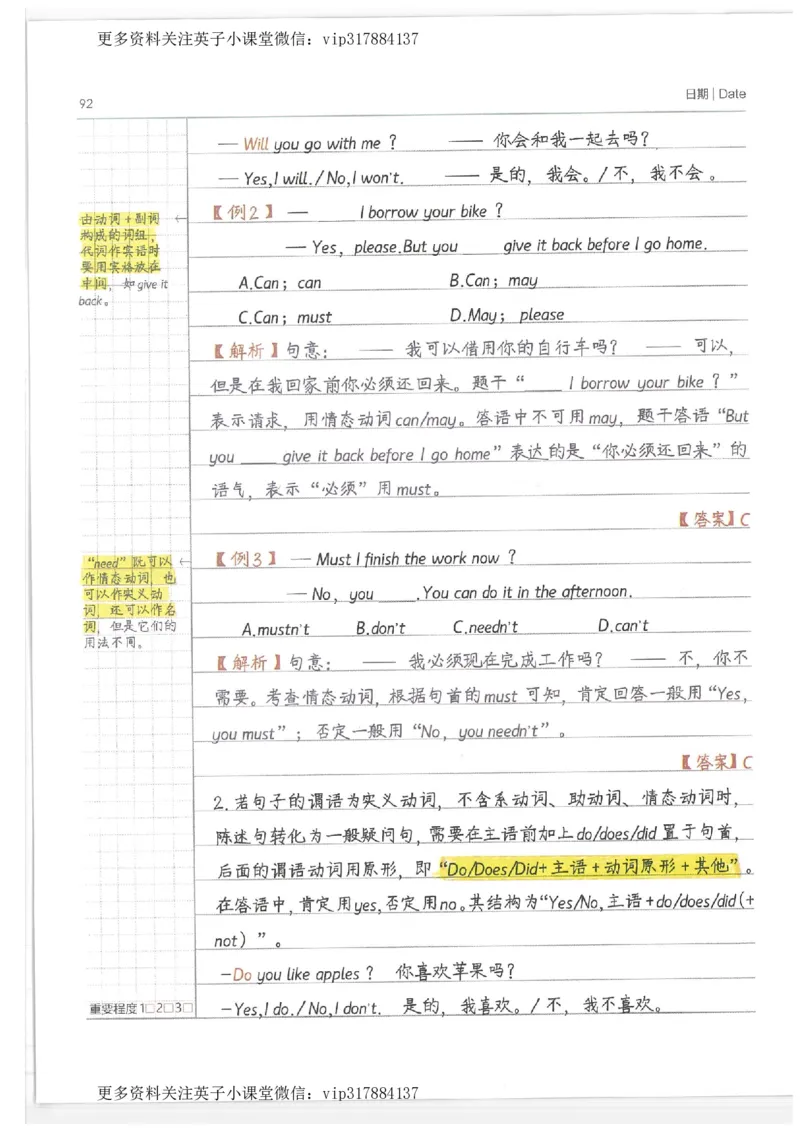 更多资料关注英子小课堂微信：vip317884137
92
日期 | Date
— Will you go with me ? —— 你会和我一起去吗？
— Yes,I will. / No,I won't. —— 是的，我会。/ 不，我不会。
由动词＋副词
构成的词组，
代词作宾语时
要用宾格放在
中间，如 give it
back。
【例2】 — ____ I borrow your bike ?
— Yes, please.But you ____ give it back before I go home.
A.Can；can B.Can；may
C.Can；must D.May；please
【解析】句意： —— 我可以借用你的自行车吗？ —— 可以，
但是在我回家前你必须还回来。题干“____ I borrow your bike ? ”
表示请求，用情态动词can/may。答语中不可用may，题干答语“But
you ____ give it back before I go home”表达的是“你必须还回来”的
语气，表示“必须”用must。
【答案】C
“need”既可以
作情态动词，也
可以作实义动
词，还可以作名
词，但是它们的
用法不同。
【例3】 — Must I finish the work now ?
— No，you ____.You can do it in the afternoon.
A.mustn't B.don't C.needn't D.can't
【解析】句意： —— 我必须现在完成工作吗？ —— 不，你不
需要。考查情态动词，根据句首的must 可知，肯定回答一般用“Yes,
you must”；否定一般用“No，you needn't”。
【答案】C
2. 若句子的谓语为实义动词，不含系动词、助动词、情态动词时，
陈述句转化为一般疑问句，需要在主语前加上do/does/did 置于句首，
后面的谓语动词用原形，即“Do/Does/Did+主语＋动词原形＋其他”。
在答语中，肯定用yes,否定用no。其结构为“Yes/No,主语+do/does/did(+
not）”。
－Do you like apples ? 你喜欢苹果吗？
－Yes,I do. / No,I don't. 是的，我喜欢。/ 不，我不喜欢。
重要程度 1□2□3□
更多资料关注英子小课堂微信：vip317884137